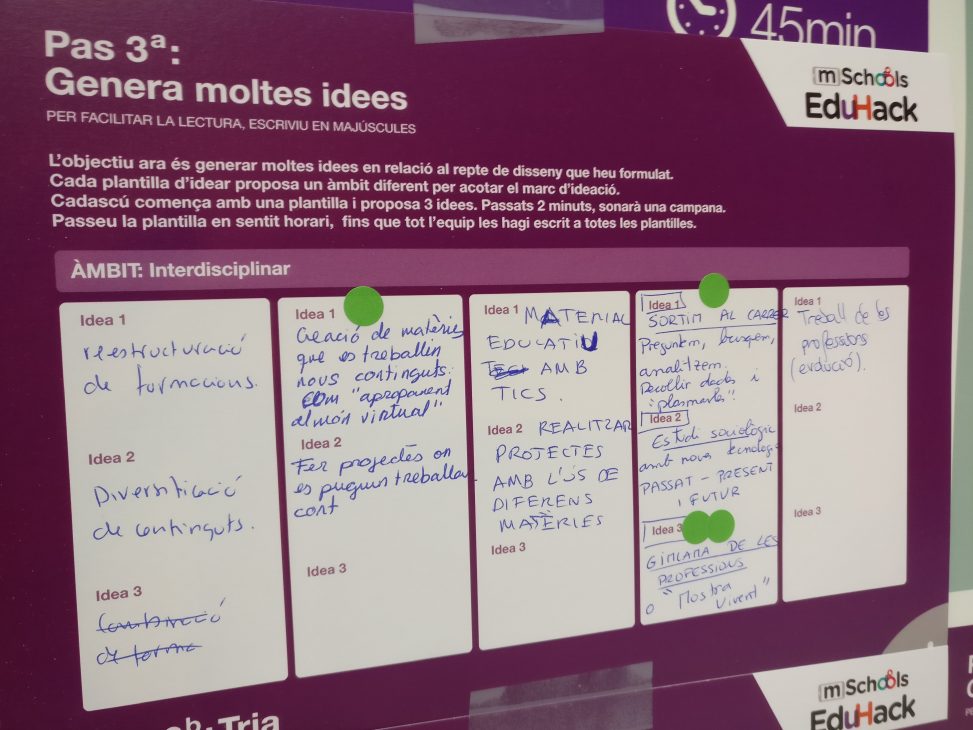 45min
Pas 3ª:
Genera moltes idees
PER FACILITAR LA LECTURA, ESCRIVIU EN MAJÚSCULES
mSchools
EduHack
L'objectiu ara és generar moltes idees en relació al repte de disseny que heu formulat.
Cada plantilla d'idear proposa un àmbit diferent per acotar el marc d'ideació.
Cadascú comença amb una plantilla i proposa 3 idees. Passats 2 minuts, sonarà una campana.
Passeu la plantilla en sentit horari, fins que tot l'equip les hagi escrit a totes les plantilles.
ÀMBIT: Interdisciplinar
Idea 1
reestructuració
de formacions.
Idea 2
Diversificació
de continguts.
Idea 3
de forma
Idea 1
Creació de matèries
que es treballin
nous continguts.
com "apropament
al món virtual"
Idea 2
Fer projectes on
es puguin treballar
cont
Idea 3
Idea 1 MATERIAL
EDUCATIU
AMB
TICS.
Idea 2 REALITZAR
PROJECTES
AMB L'ÚS DE
DIFERENS
MATÈRIES
Idea 3
Idea 1
SORTIM AL CARRER
Preguntem, busquem,
analitzem.
Recollir dades i
"plasmarles".
Idea 2
Estudi sociològic
amb nova tecnologi
PASSAT - PRESENT
i FUTUR
Idea 3
GIMCAMA DE LES
PROFESSIONS
O "Mostra
Vivent"
Idea 1
Treball de les
professions
(evolució).
Idea 2
Idea 3
Tria
mSchools
EduHack